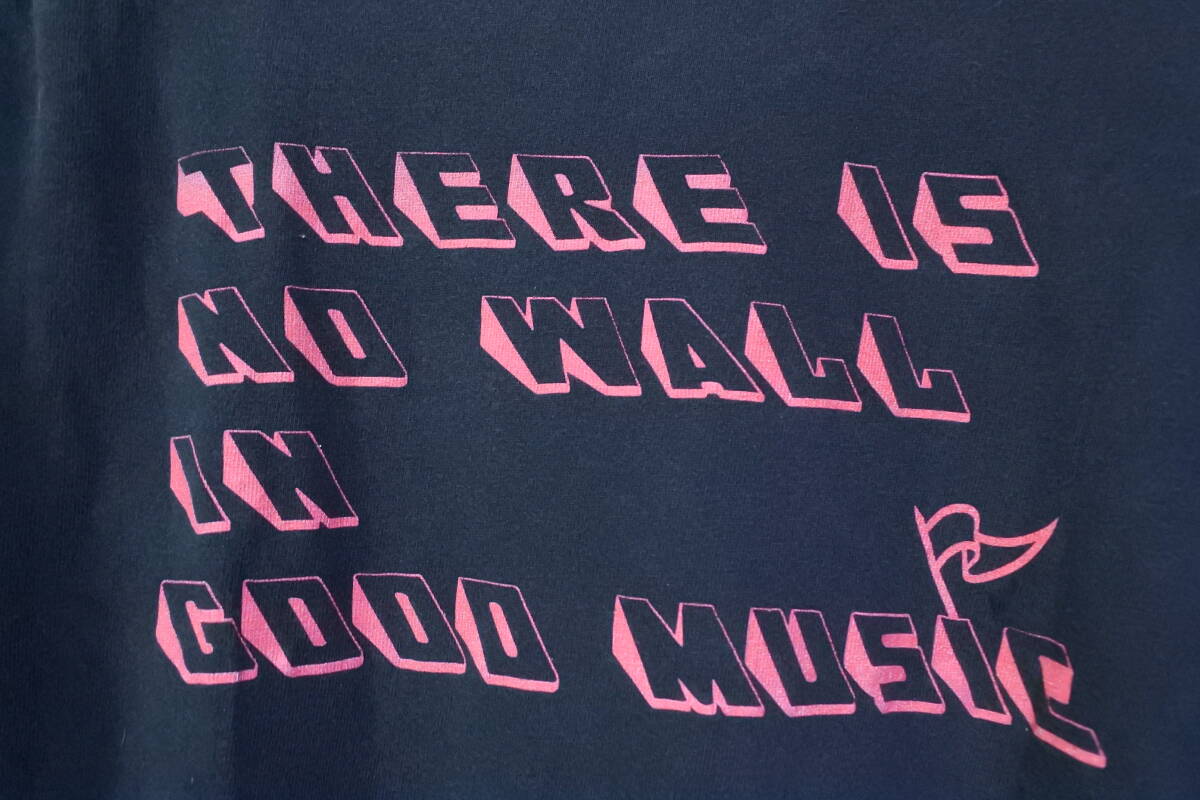 THERE IS
NO WALL
IN
GOOD MUSIC